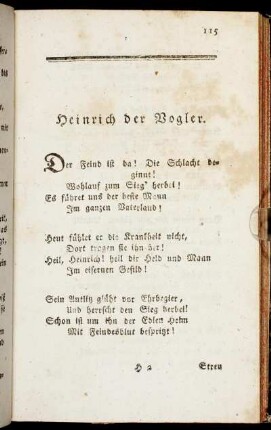 115
Heinrich der Vogler.
Der Feind ist da! Die Schlacht be-
ginnt!
Wohlauf zum Sieg' herbei!
Es führet uns der beste Mann
Im ganzen Vaterland!
Heut fühlet er die Krankheit nicht,
Dort tragen sie ihn her!
Heil, Heinrich! heil dir Held und Mann
Im eisernen Gefild!
Sein Antlitz glüht vor Ehrbegier,
Und herrscht den Sieg herbei!
Schon ist um ihn der Edlen Helm
Mit Feindesblut bespritzt!
H 2
Streu